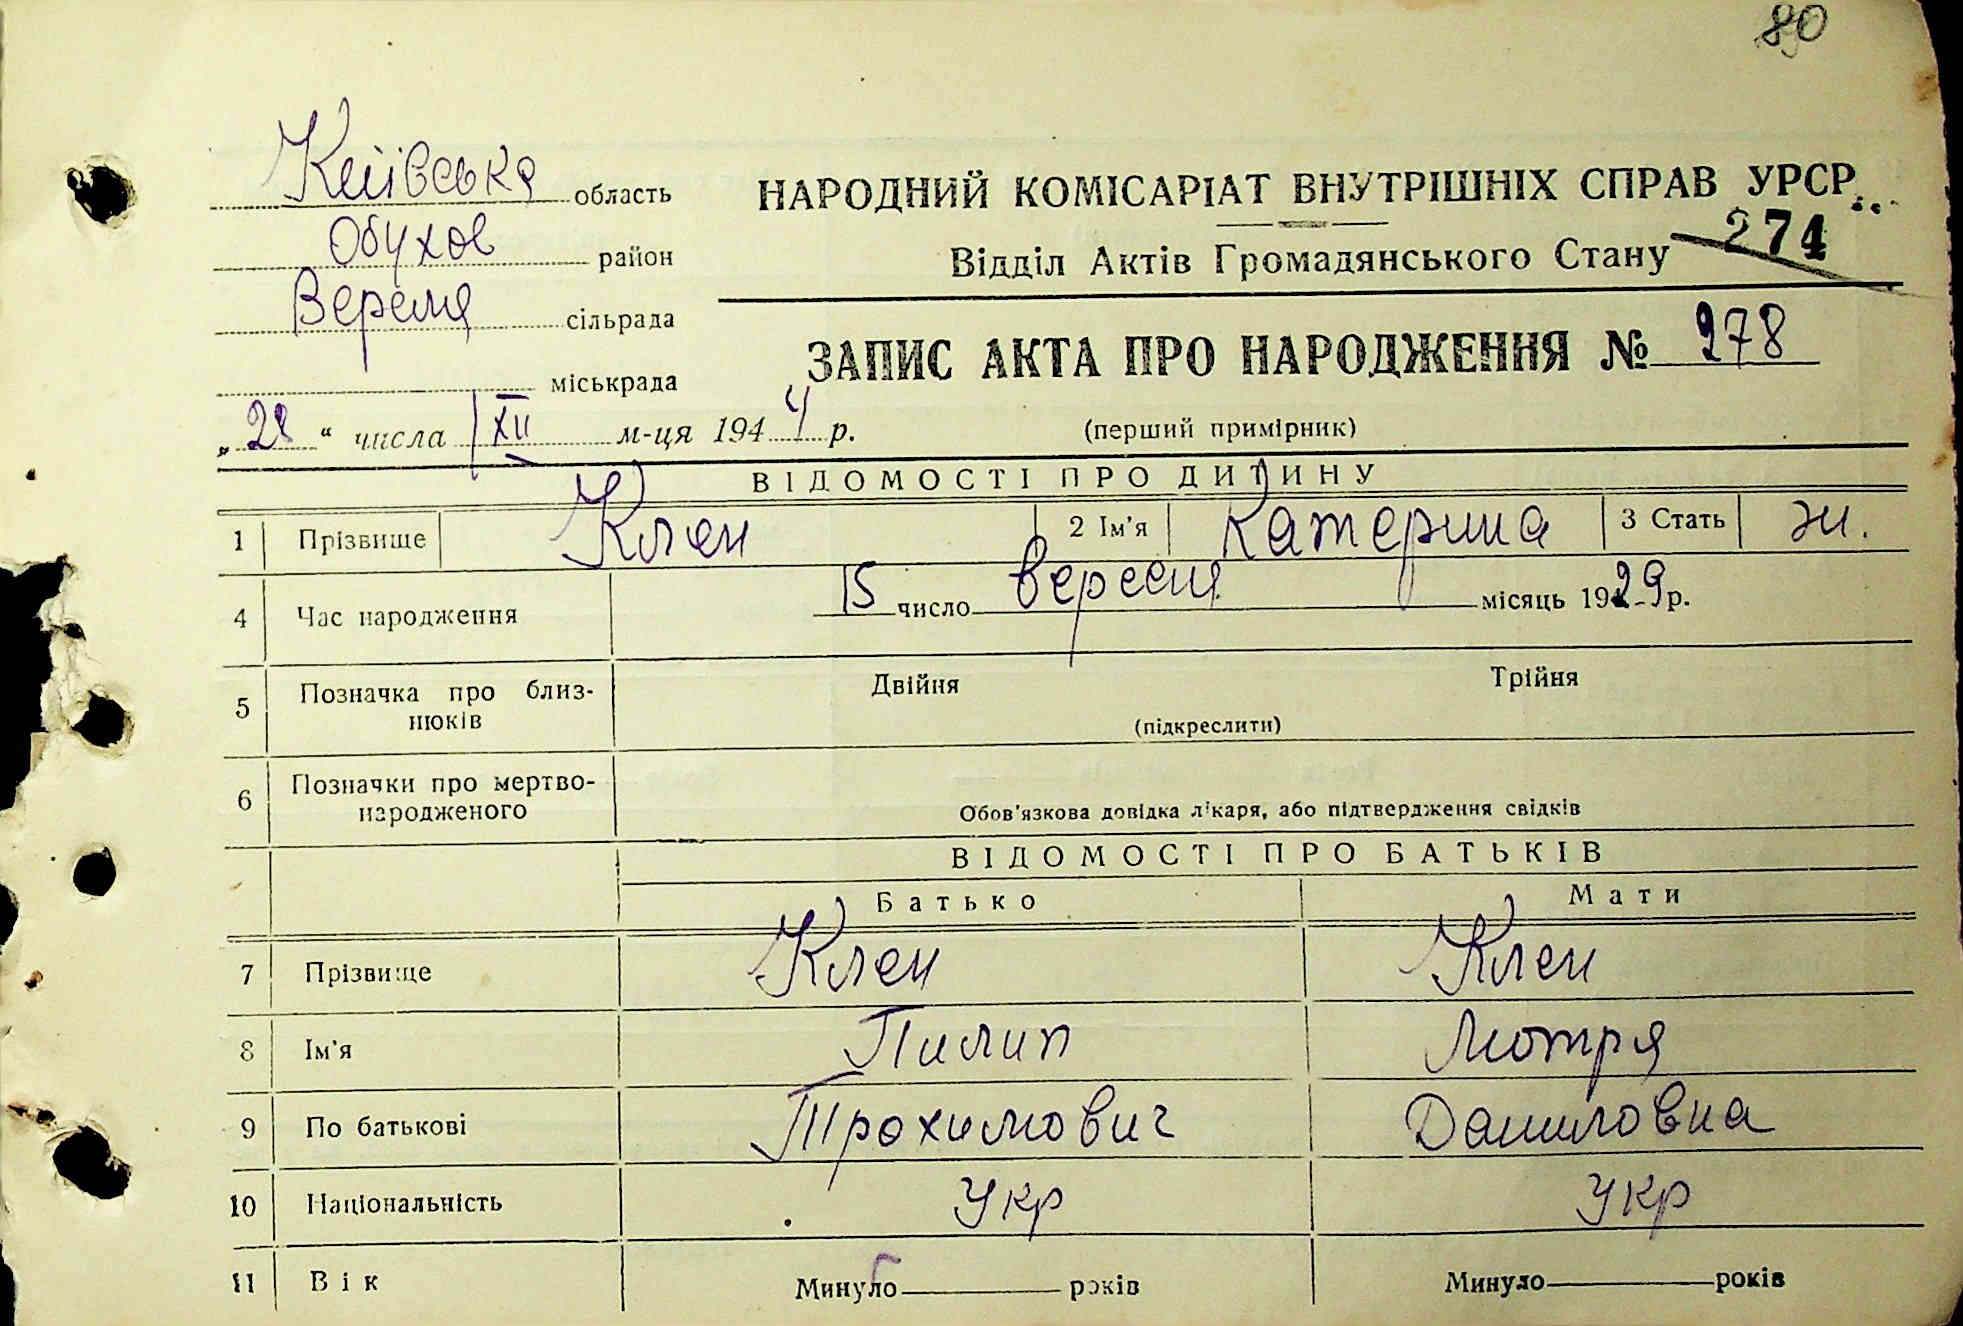 80
Київська область
Обухов район
Веремя сільрада
міськрада
„28“ числа XII м-ця 1944 р.
НАРОДНИЙ КОМІСАРІАТ ВНУТРІШНІХ СПРАВ УРСР
Відділ Актів Громадянського Стану 274
ЗАПИС АКТА ПРО НАРОДЖЕННЯ № 278
(перший примірник)
ВІДОМОСТІ ПРО ДИТИНУ
1 Прізвище Клен 2 Ім'я Катерина 3 Стать ж.
4 Час народження 15 число вересня місяць 1929 р.
5 Позначка про близнюків Двійня Трійня
(підкреслити)
6 Позначки про мертвонародженого Обов'язкова довідка лікаря, або підтвердження свідків
ВІДОМОСТІ ПРО БАТЬКІВ
Батько Мати
7 Прізвище Клен Клен
8 Ім'я Пилип Мотря
9 По батькові Трохимович Даниловна
10 Національність Укр Укр
11 Вік Минуло років Минуло років